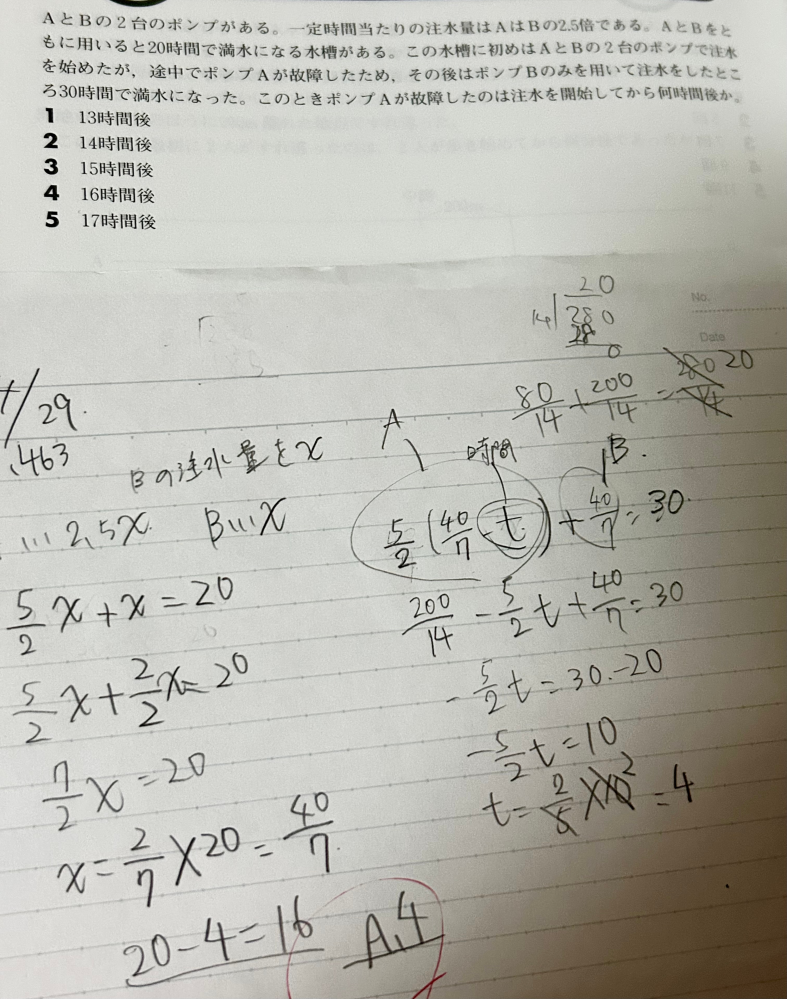 AとBの2台のポンプがある。一定時間当たりの注水量はAはBの2.5倍である。AとBをと
もに用いると20時間で満水になる水槽がある。この水槽に初めはAとBの2台のポンプで注水
を始めたが，途中でポンプAが故障したため，その後はポンプBのみを用いて注水をしたとこ
ろ30時間で満水になった。このときポンプAが故障したのは注水を開始してから何時間後か。
1 13時間後
2 14時間後
3 15時間後
4 16時間後
5 17時間後
No.
Date
/29.
.463
Bの注水量をx
... 2,5x. B...x
5/2 x + x = 20
5/2 x + 2/2 x = 20
7/2 x = 20
x = 2/7 × 20 = 40/7
20 - 4 = 16
A,4
20
14 280
28
0
80/14 + 200/14 = 280/14 20
A 時間 B.
5/2 (40/7 - t) + 40/7 = 30
200/14 - 5/2 t + 40/7 = 30
- 5/2 t = 30 - 20
- 5/2 t = 10
t = 2/5 × 10 2 = 4